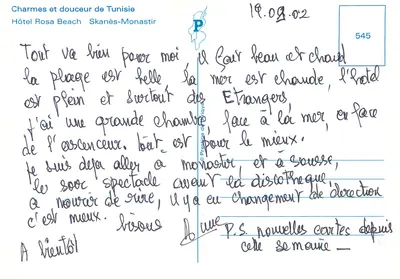 Charmes et douceur de Tunisie
Hôtel Rosa Beach Skanès-Monastir
19.08.02
545
Tout va bien pour moi, il fait beau et chaud
la plage est belle la mer est chaude, l'hotel
est plein et surtout des Etrangers,
j'ai une grande chambre, face à la mer, en face
de l'ascenceur. tout est pour le mieux.
je suis deja aller a monastir et à sousse,
le soir spectacle avant la discothèque,
a mourir de rire, il y a eu changement de direction
c'est mieux. bisous
A bientôt
P.S. nouvelles cartes depuis
cette semaine